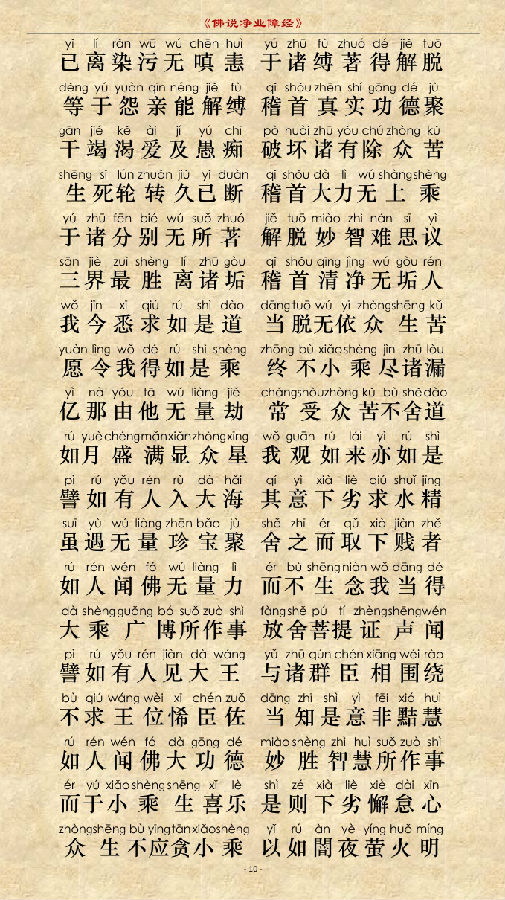 《佛说净业障经》
yǐ lí rǎn wū wú chēn huì yú zhū fù zhuó dé jiě tuō
已离染污无嗔恚 于诸缚著得解脱
děng yú yuàn qīn néng jiě fù qǐ shǒu zhēn shí gōng dé jù
等于怨亲能解缚 稽首真实功德聚
gān jié kě ài jí yú chī pò huài zhū yǒu chú zhòng kǔ
干竭渴爱及愚痴 破坏诸有除众苦
shēng sǐ lún zhuǎn jiǔ yǐ duàn qǐ shǒu dà lì wú shàng shèng
生死轮转久已断 稽首大力无上乘
yú zhū fēn bié wú suǒ zhuó jiě tuō miào zhì nán sī yì
于诸分别无所著 解脱妙智难思议
sān jiè zuì shèng lí zhū gòu qǐ shǒu qīng jìng wú gòu rén
三界最胜离诸垢 稽首清净无垢人
wǒ jīn xī qiú rú shì dào dāng tuō wú yī zhòng shēng kǔ
我今悉求如是道 当脱无依众生苦
yuàn lìng wǒ dé rú shì shèng zhōng bù xiǎo shèng jìn zhū lòu
愿令我得如是乘 终不小乘尽诸漏
yì nà yóu tā wú liàng jié cháng shòu zhòng kǔ bù shě dào
亿那由他无量劫 常受众苦不舍道
rú yuè chéng mǎn xiǎn zhòng xīng wǒ guān rú lái yì rú shì
如月盛满显众星 我观如来亦如是
pì rú yǒu rén rù dà hǎi qí yì xià liè qiú shuǐ jīng
譬如有人入大海 其意下劣求水精
suī yù wú liàng zhēn bǎo jù shě zhī ér qǔ xià jiàn zhě
虽遇无量珍宝聚 舍之而取下贱者
rú rén wén fó wú liàng lì ér bù shēng niàn wǒ dāng dé
如人闻佛无量力 而不生念我当得
dà shèng guǎng bó suǒ zuò shì fàng shě pú tí zhèng shēng wén
大乘广博所作事 放舍菩提证声闻
pì rú yǒu rén jiàn dà wáng yǔ zhū qún chén xiāng wéi rào
譬如有人见大王 与诸群臣相围绕
bù qiú wáng wèi xī chén zuǒ dāng zhī shì yì fēi xiá huì
不求王位悕臣佐 当知是意非黠慧
rú rén wén fó dà gōng dé miào shèng zhì huì suǒ zuò shì
如人闻佛大功德 妙胜智慧所作事
ér yú xiǎo shèng shēng xǐ lè shì zé xià liè xiè dài xīn
而于小乘生喜乐 是则下劣懈怠心
zhòng shēng bù yīng tān xiǎo shèng yǐ rú àn yè yíng huǒ míng
众生不应贪小乘 以如闇夜萤火明
- 10 -